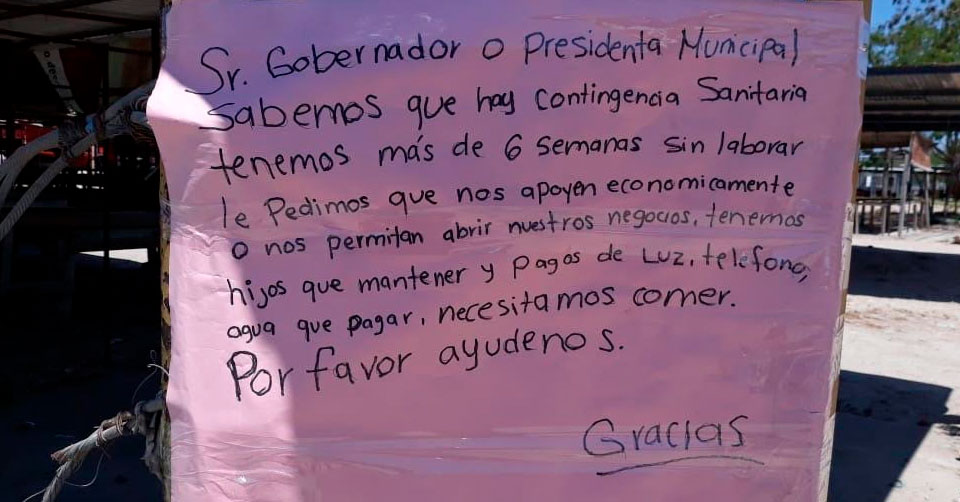 Sr. Gobernador o Presidenta Municipal
Sabemos que hay Contingencia Sanitaria
tenemos más de 6 semanas sin laborar
le Pedimos que nos apoyen economicamente
o nos permitan abrir nuestros negocios, tenemos
hijos que mantener y pagos de Luz, teléfono,
agua que pagar, necesitamos comer.
Por favor ayudenos.
Gracias